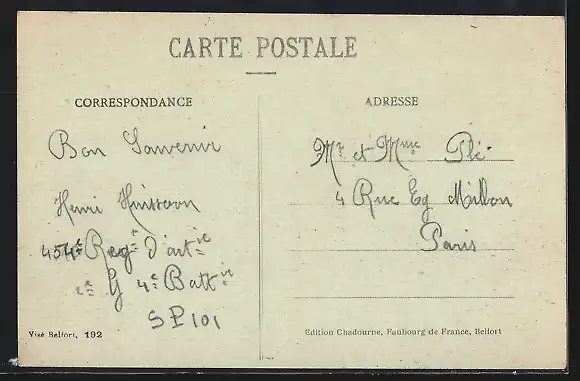 CARTE POSTALE
CORRESPONDANCE
Bon Souvenir
Henri
454e Reg.t d'art.ie
2e G 4e Batt.ie
SP 101
Visé Belfort, 192
ADRESSE
Mr et Mme Plé
4 Rue Eg Millon
Paris
Edition Chadourne, Faubourg de France, Belfort